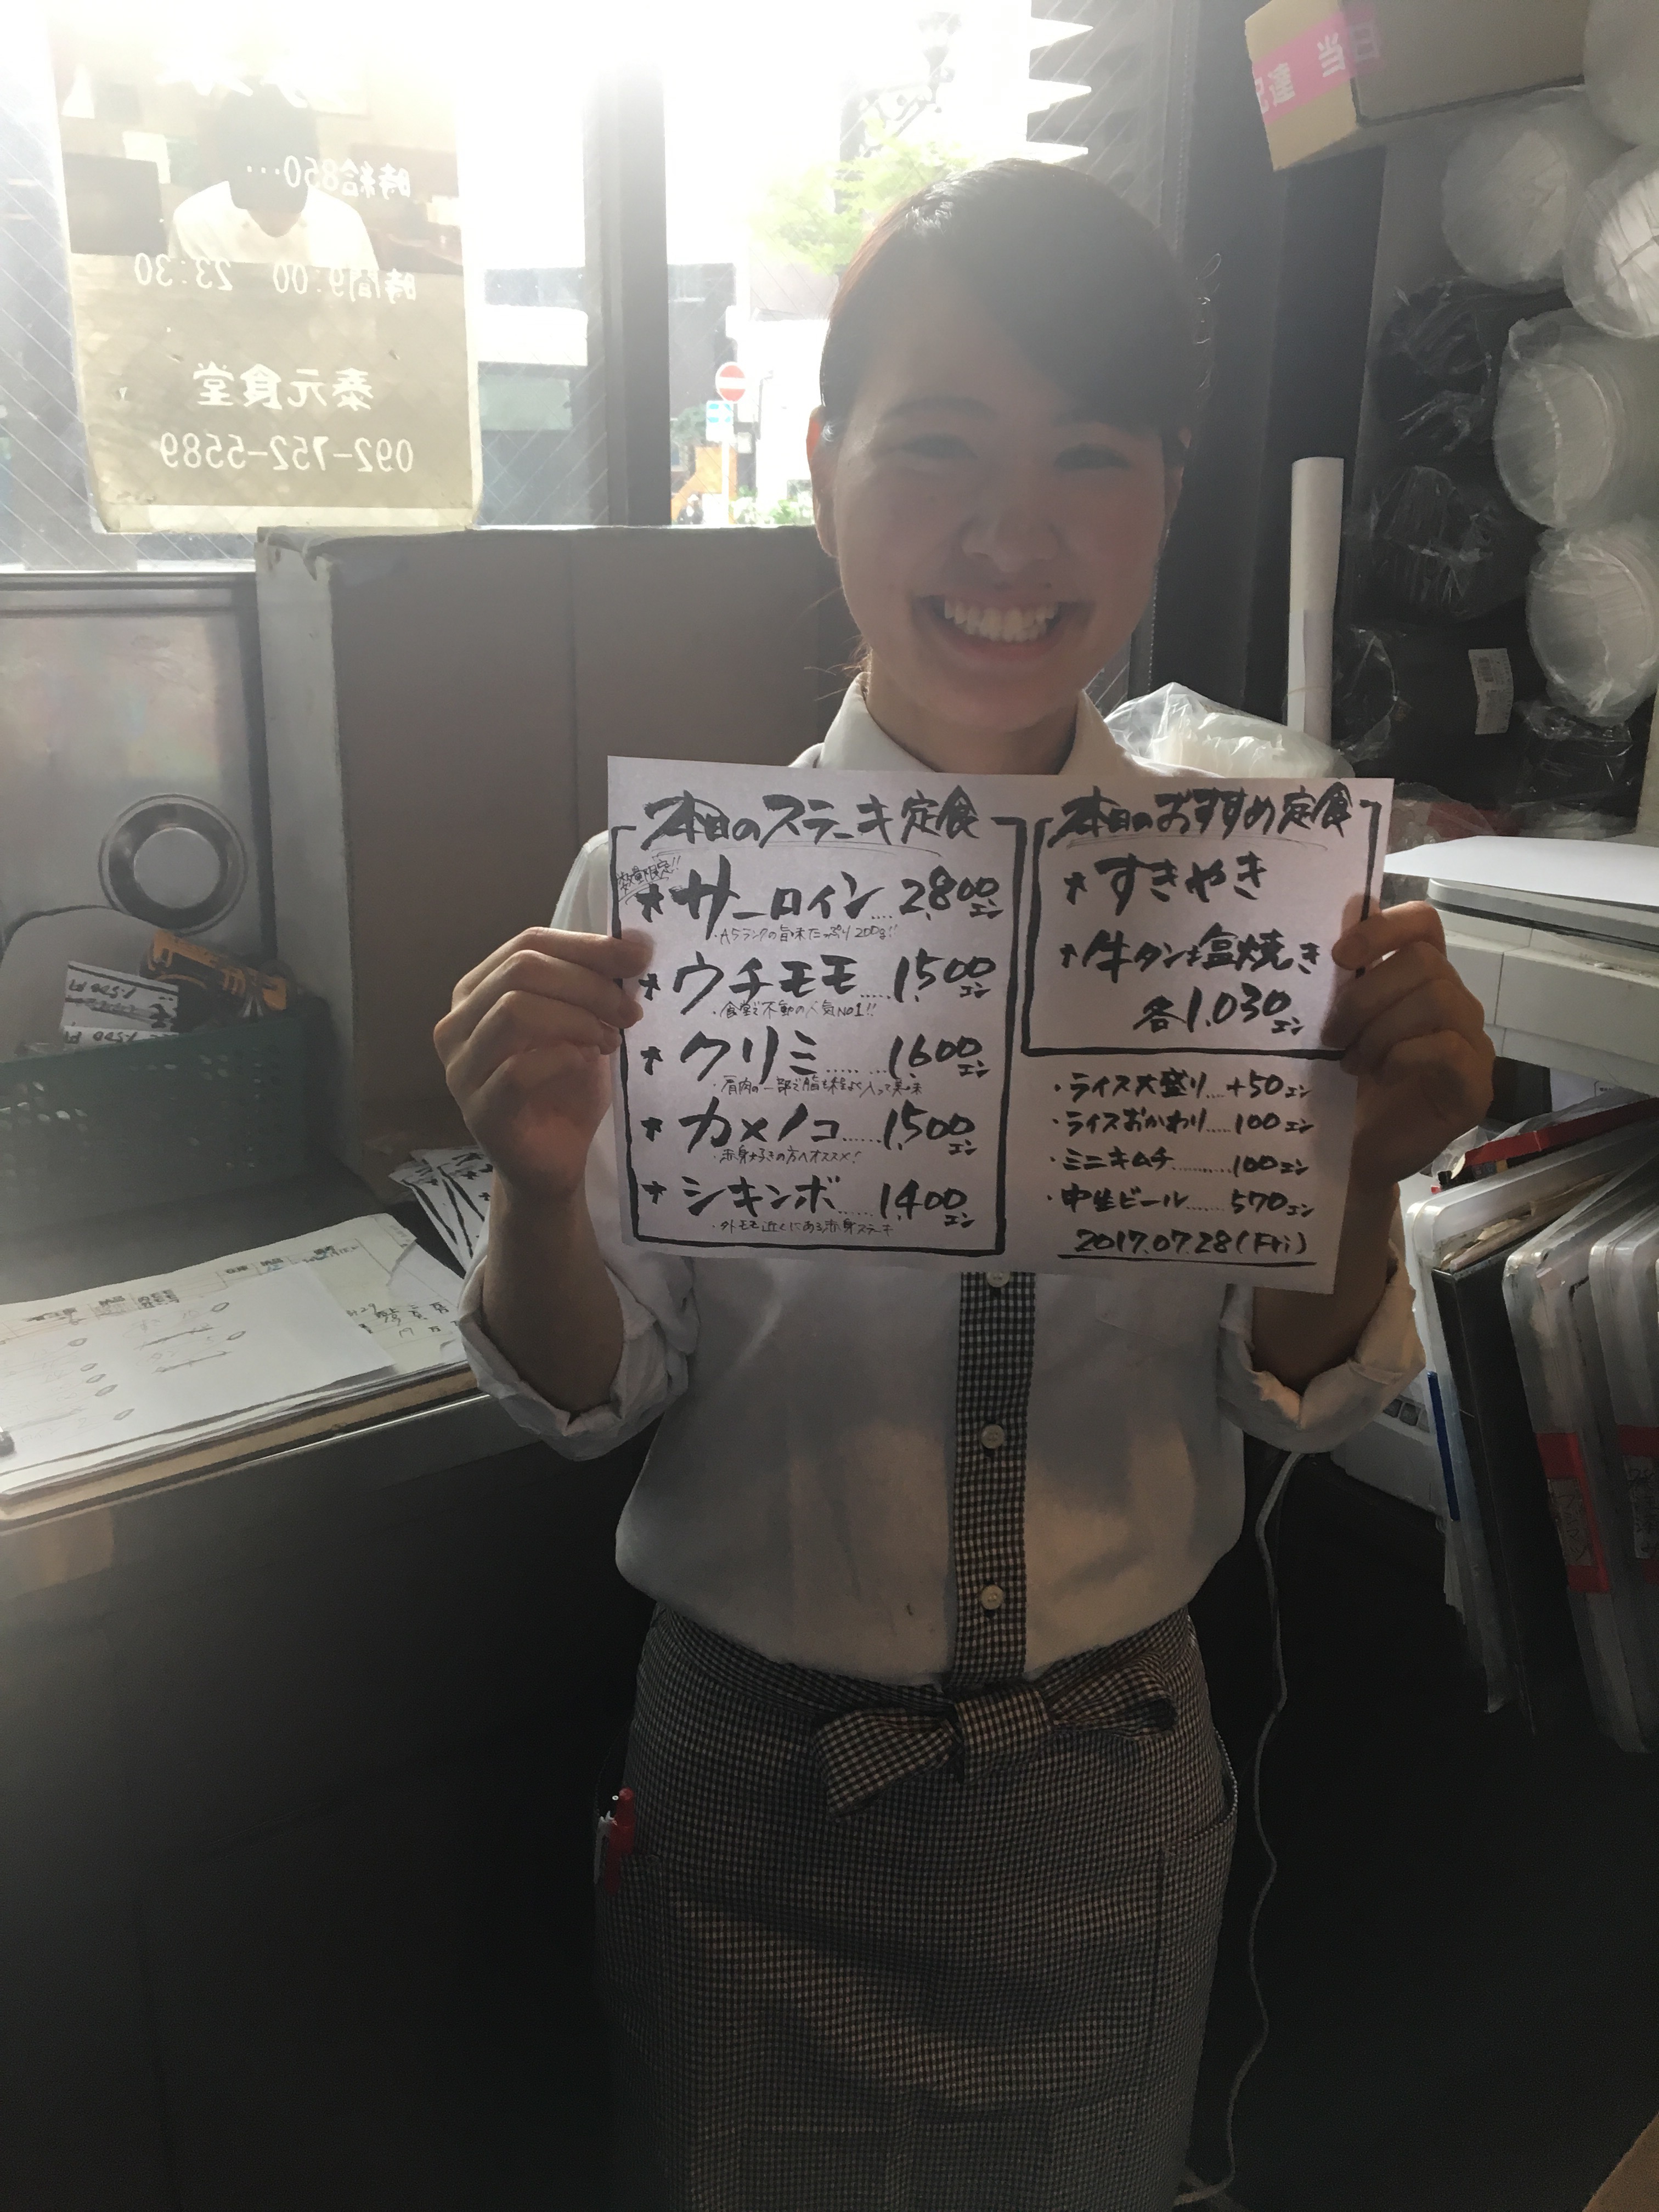 時給850…
時間9:00 23:30
泰元食堂
092-752-5589
本日のステーキ定食
数量限定!!
★サーロイン…. 2,800エン
・A5ランクの旨味たっぷり200g!!
★ウチモモ….. 1,500エン
・食堂で不動の人気NO1!!
★クリミ…… 1,600エン
・肩肉の一部で脂も程よく入って美味
★カメノコ….. 1,500エン
・赤身好きの方へオススメ!
★シキンボ….. 1,400エン
・外モモ近くにある赤身ステーキ
本日のおすすめ定食
★すきやき
★牛タン塩焼き
各1,030エン
・ライス大盛り…. +50エン
・ライスおかわり….. 100エン
・ミニキムチ………. 100エン
・中生ビール…… 570エン
2017.07.28(Fri)